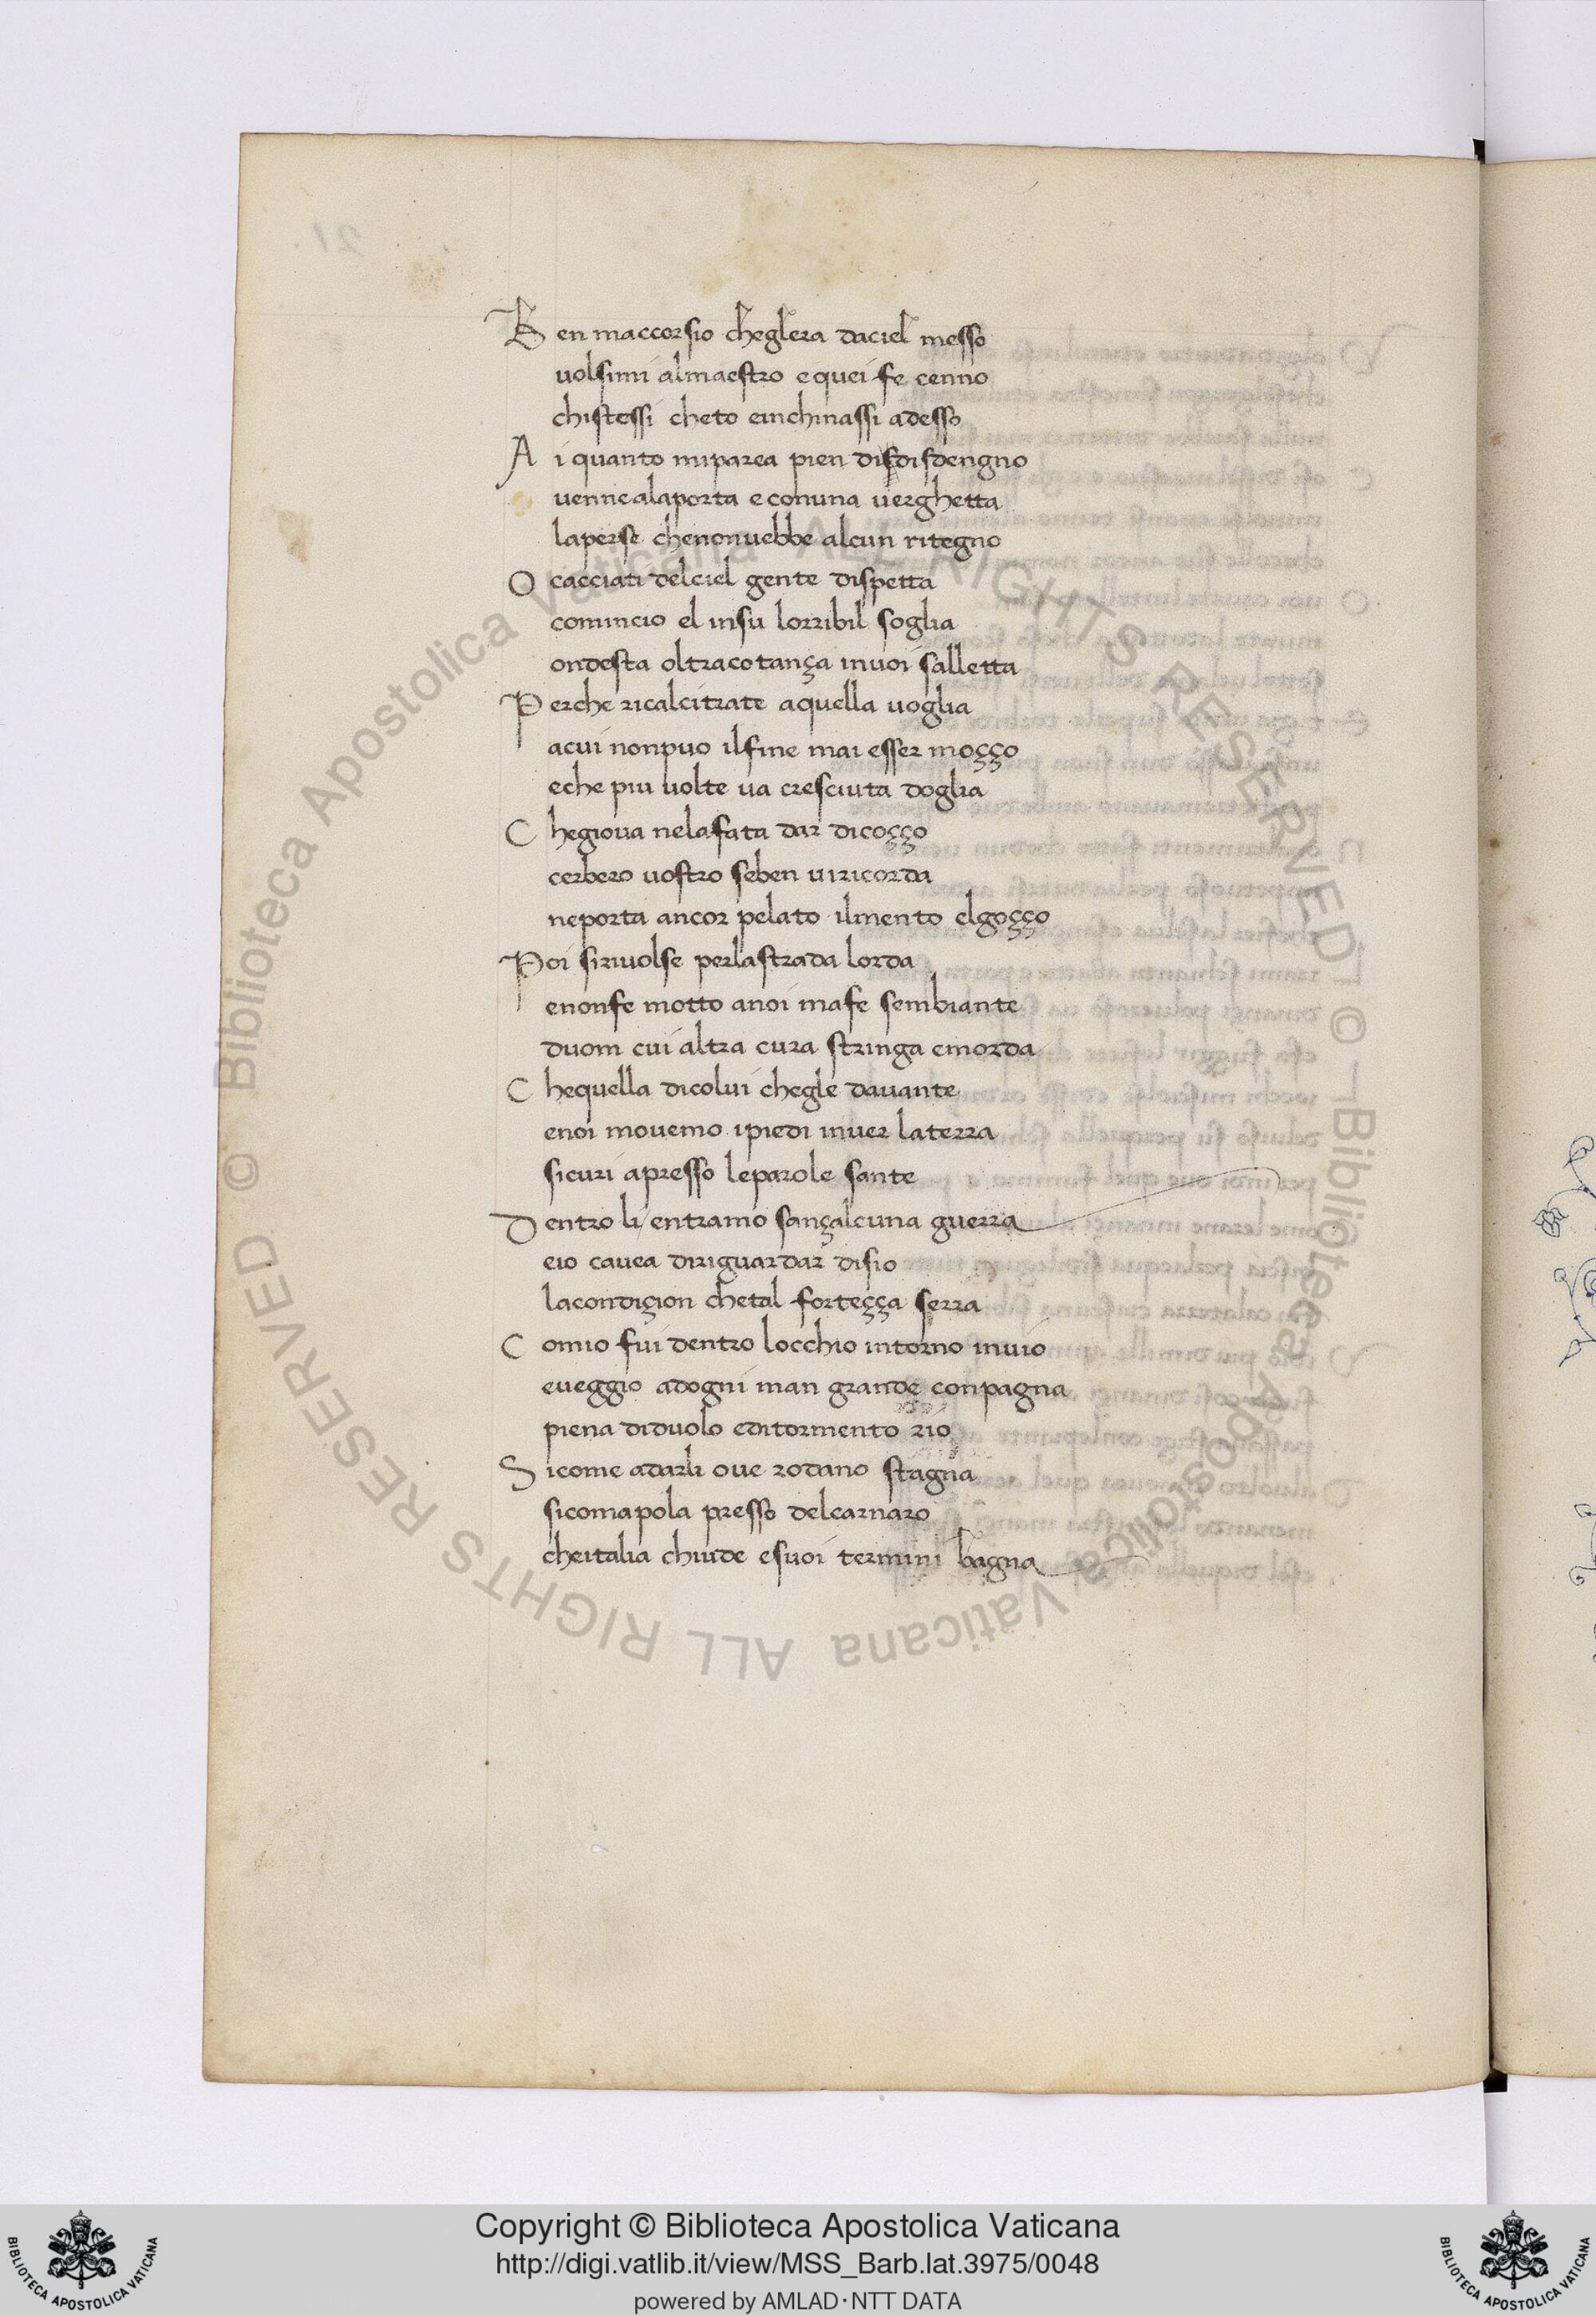 Ben maccorsio cheglera daciel messo
uolsimi almaestro e quei fe cenno
chistessi cheto einchinassi adesso
Ai quanto miparea pien disdisdengno
uenne alaporta e conuna uerghetta
laperse chenonuebbe alcun ritegno
O cacciati delciel gente dispetta
comincio el insu lorribil soglia
ondesta oltracotança inuoi salletta
Perche ricalcitrate aquella uoglia
acui nonpuo ilfine mai esser moçço
eche piu uolte ua cresciuta doglia
Chegioua nelafata dar dicoçço
cerbero uostro seben uiricorda
neporta ancor pelato ilmento elgoçço
Poi siriuolse perlastrada lorda
enonfe motto anoi mafe sembiante
duom cui altra cura stringa emorda
Chequella dicolui chegle dauante
enoi mouemo ipiedi inuer laterra
sicuri apresso leparole sante
Dentro li entramo sançalcuna guerra
eio cauea diriguardar disio
lacondiçion chetal forteçça serra
Comio fui dentro locchio intorno inuio
eueggio adogni man grande conpagna
piena diduolo editormento rio
Sicome adarli oue rodano stagna
sicomapola presso delcarnaro
cheitalia chiude esuoi termini bagna
Copyright © Biblioteca Apostolica Vaticana
http://digi.vatlib.it/view/MSS_Barb.lat.3975/0048
powered by AMLAD·NTT DATA
BIBLIOTECA APOSTOLICA VATICANA
BIBLIOTECA APOSTOLICA VATICANA
© Biblioteca Apostolica Vaticana ALL RIGHTS RESERVED
© Biblioteca Apostolica Vaticana ALL RIGHTS RESERVED
21